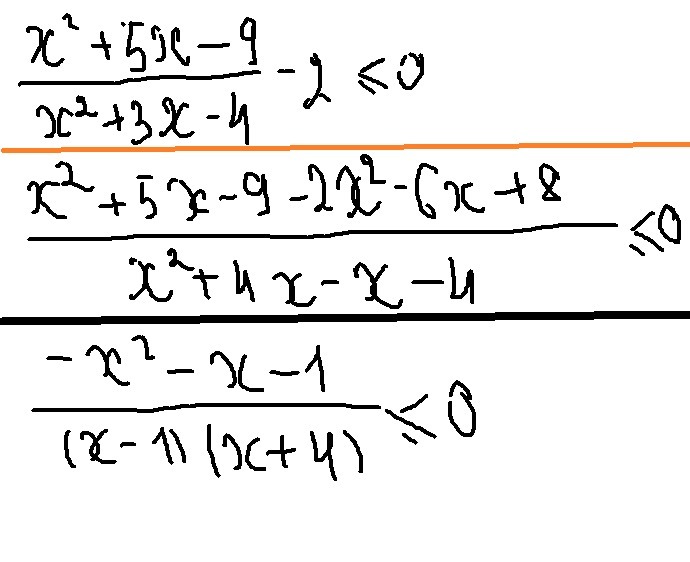 x² + 5x - 9
x² + 3x - 4
- 2 ⩽ 0
x² + 5x - 9 - 2x² - 6x + 8
x² + 4x - x - 4
⩽ 0
-x² - x - 1
(x - 1) (x + 4)
⩽ 0